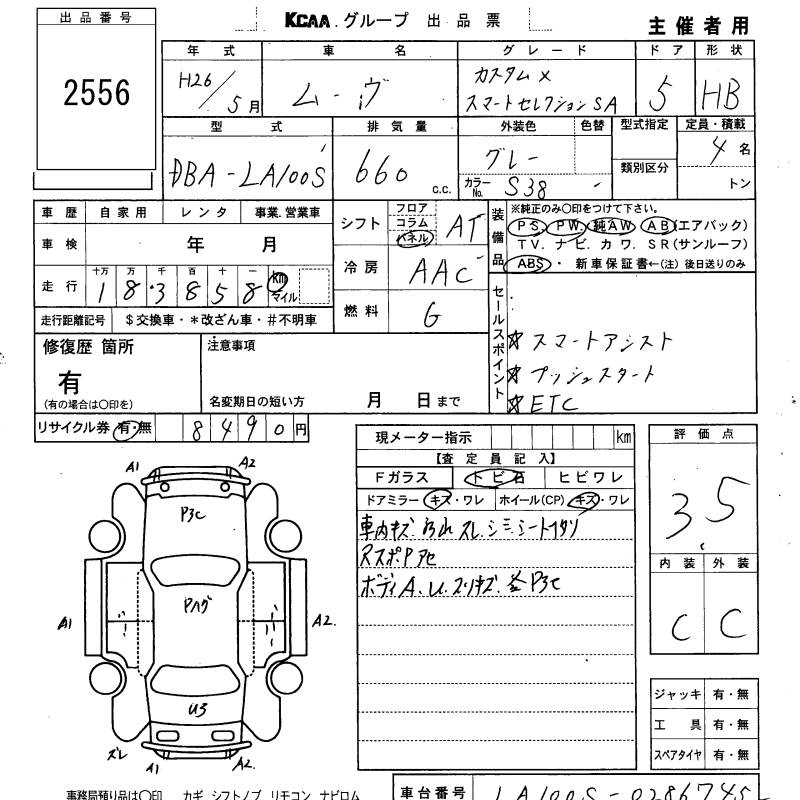 出品番号
2556
KCAA グループ 出品票
主催者用
年式 車名 グレード ドア 形状
H26/5月 ムーヴ カスタムX スマートセレクションSA 5 HB
型式 排気量 外装色 色替 型式指定 定員・積載
DBA-LA100S 660 c.c. グレー 類別区分 4名
カラーNo. S38 - トン
車歴 自家用 レンタ 事業.営業車
車検 年 月
走行 十万 万 千 百 十 一
1 8.3 8 5 8 km マイル
走行距離記号 $交換車・*改ざん車・#不明車
シフト フロア コラム パネル AT
冷房 AAC
燃料 G
装備品
※純正のみ〇印をつけて下さい。
PS. PW. 純AW AB(エアバック)
TV. ナビ. カワ. SR(サンルーフ)
ABS・ 新車保証書←(注)後日送りのみ
セールスポイント
☆ スマートアシスト
☆ プッシュスタート
☆ ETC
修復歴 箇所
有
(有の場合は〇印を)
注意事項
名変期日の短い方 月 日まで
リサイクル券 有・無 8490円
現メーター指示 km
【査定員記入】
Fガラス トビ石 ヒビワレ
ドアミラー キズ・ワレ ホイール(CP) キズ・ワレ
車内キズ 汚れ スレ.シミ.シート
RスポPアセ
ボディA.U.スリキズ. P3C
評価点
3.5
内装 外装
C C
ジャッキ 有・無
工具 有・無
スペアタイヤ 有・無
A1 A2
P3C
A1 Pハゲ A2.
U3
ズレ A1 A2.
事務局預り品は〇印 カギ シフトノブ リモコン ナビロム
車台番号 LA100S-0286745